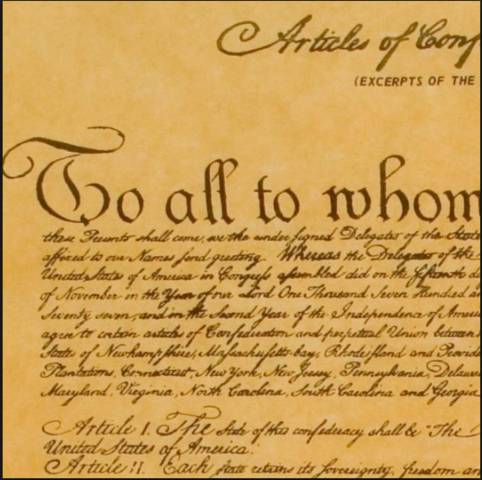 Articles of Conf
(EXCERPTS OF THE
To all to whom
these Presents shall come, we the undersigned Delegates of the State
affixed to our Names send greeting. Whereas the Delegates of the
United States of America in Congress assembled did on the fifteenth d
of November in the Year of our Lord One Thousand Seven Hundred a
Seventy seven, and in the Second Year of the Independence of Ameri
agree to certain articles of Confederation and perpetual Union between
State of Newhampshire, Massachusetts-bay, Rhodeisland and Provid
Plantations, Connecticut, New York, New Jersey, Pennsylvania, Delawa
Maryland, Virginia, North Carolina, South Carolina and Georgia
Article I. The state of this confederacy shall be "The
United States of America."
Article II. Each state retains its sovereignty, freedom an